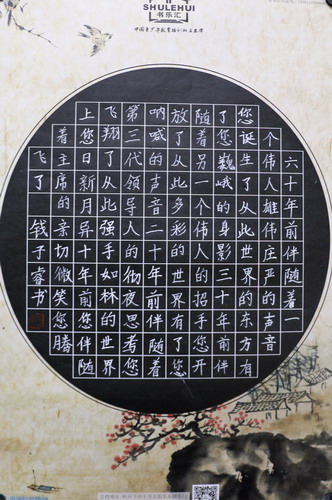 SHULEHUI
书乐汇
六十年前伴随着一
个伟人雄伟庄严的声音
您诞生了从此世界的东方有
了您巍峨的身影三十年前伴
随着另一个伟人的招手您开
放了从此多彩的世界有了您
呐喊的声音二十年前伴随着
第三代领导人的彻夜思考您
飞翔了从此强手如林的世界
上您日新月异十年前伴随
着主席的亲切微笑您腾
飞了
钱子睿书